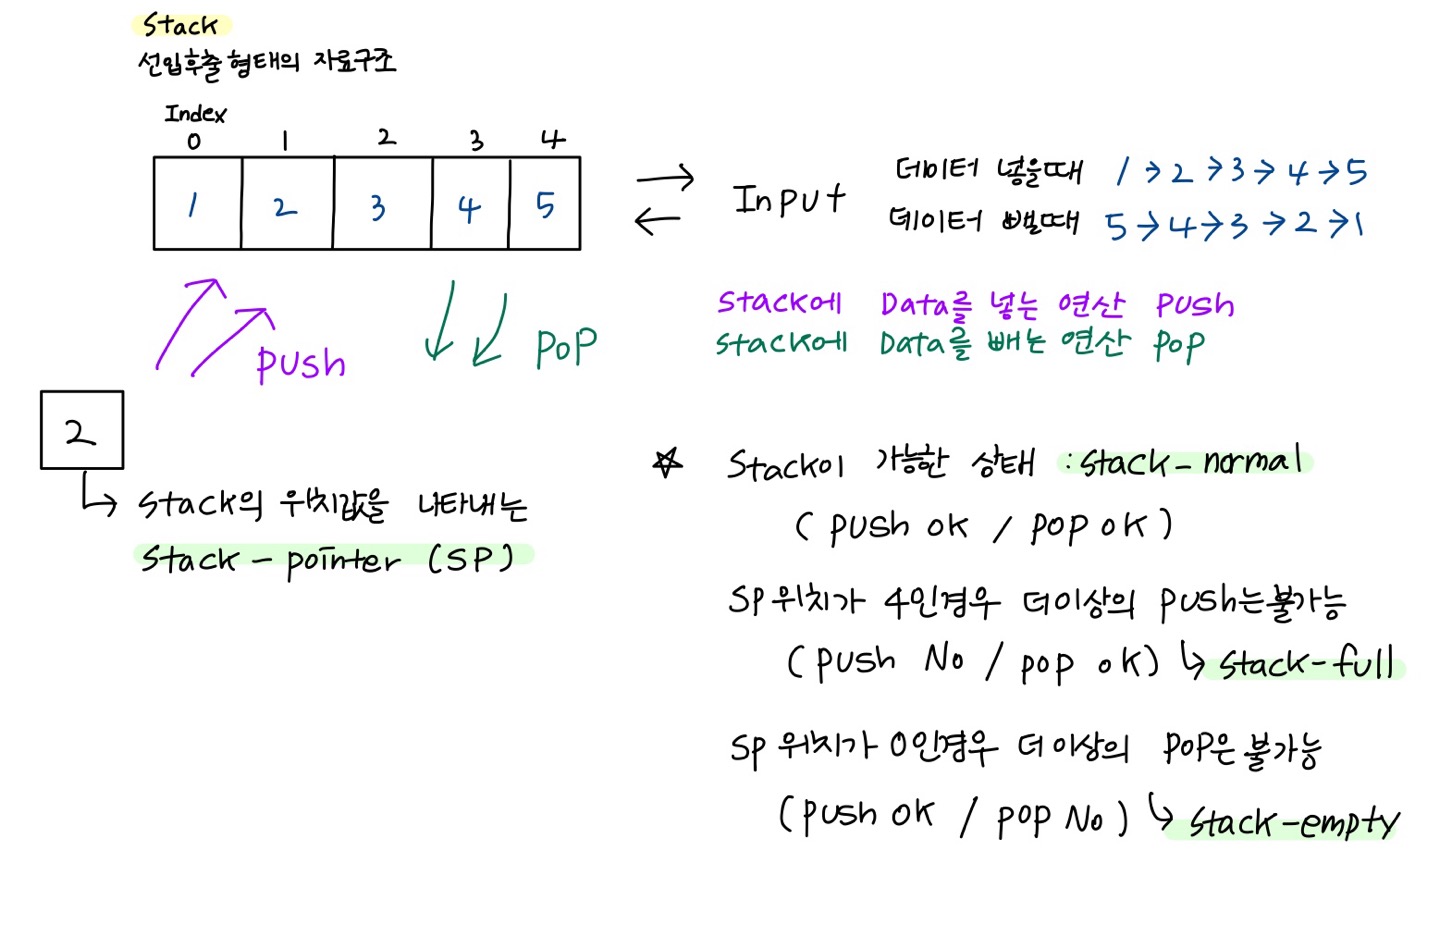 Stack
선입후출 형태의 자료구조
Index
0 1 2 3 4
1 2 3 4 5
Input
데이터 넣을때 1→2→3→4→5
데이터 뺄때 5→4→3→2→1
push
pop
Stack에 Data를 넣는 연산 push
Stack에 Data를 빼는 연산 pop
2
↳ Stack의 위치값을 나타내는
Stack-pointer (SP)
☆ Stack이 가능한 상태 : stack-normal
(push ok / pop ok)
SP위치가 4인경우 더이상의 push는불가능
(push No / pop ok) ↳ stack-full
SP 위치가 0인경우 더이상의 pop은 불가능
(push ok / pop No) ↳ stack-empty